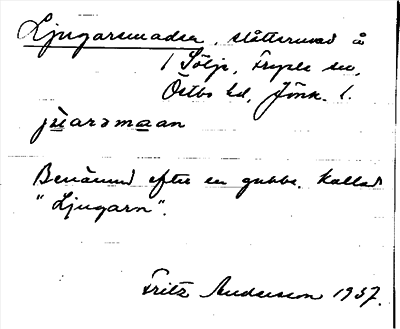 Ljugarsmadsa, slåttermad å
/ Sölje, Fryele sn,
Östbo hd, Jönk. l.
jùarsmaan
Benämnd efter en gubbe, kallad
"Ljugarn".
Fritz Andersson 1937.